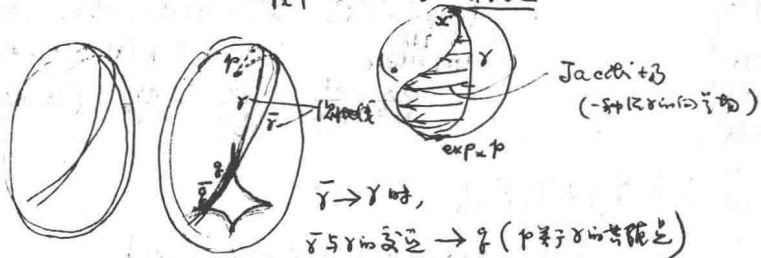 x
γ
Jacobi 场
(一种沿γ的向量场)
exp_x p
p
γ
γ̄
测地线
q
q̄
γ̄ → γ 时,
γ̄ 与 γ 的交点 → q (p 关于 γ 的共轭点)